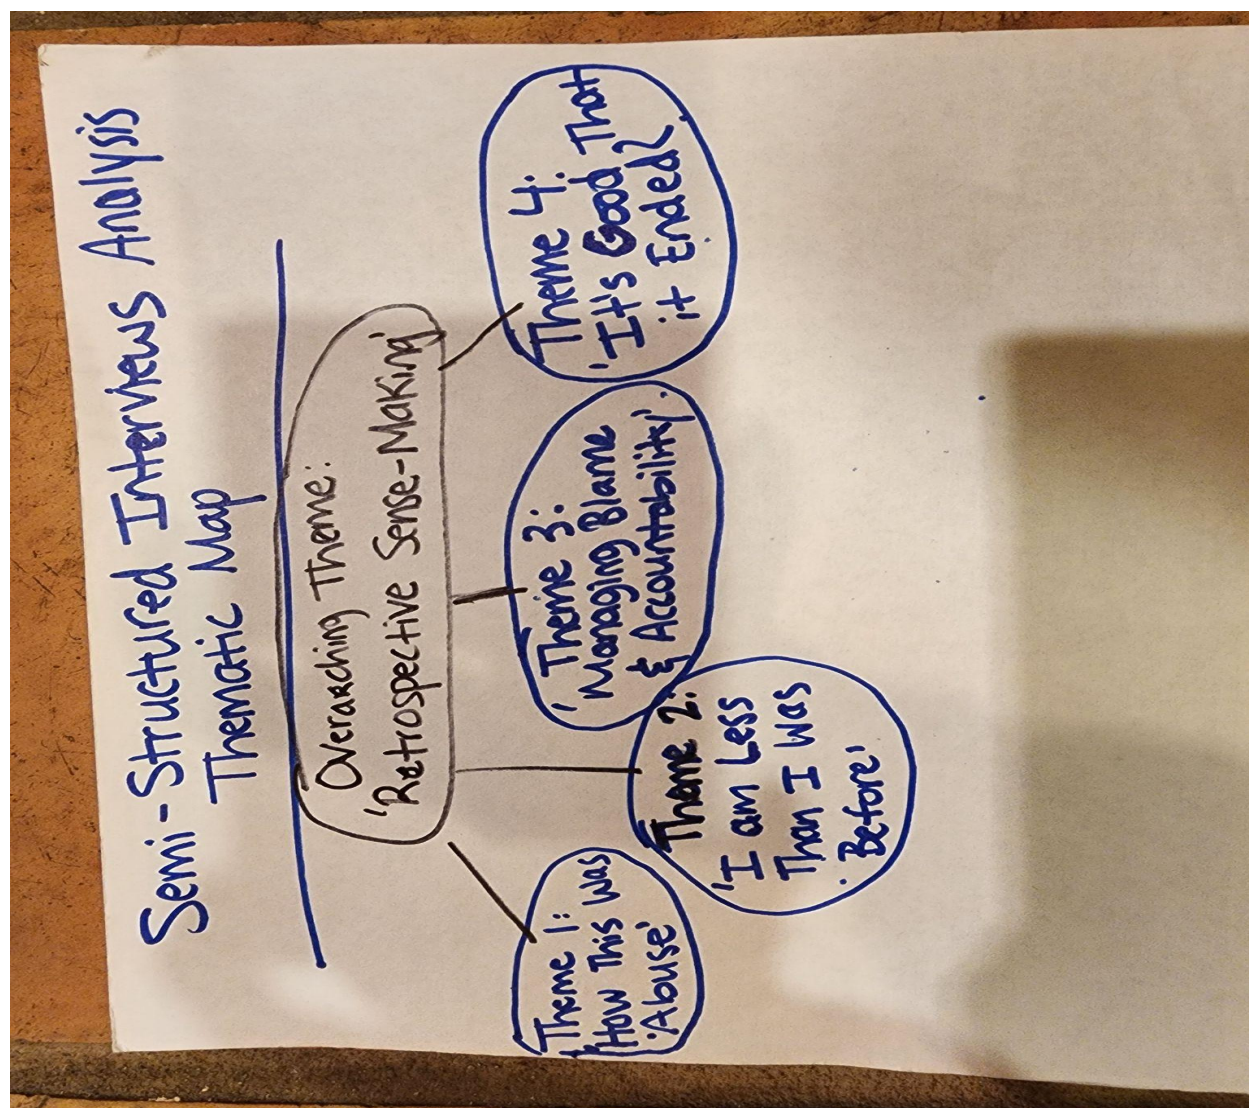 Semi-Structured Interviews Analysis
Thematic Map
Overarching Theme:
'Retrospective Sense-Making'
Theme 1:
'How This Was
'Abuse'
Theme 2:
'I am Less
Than I Was
Before'
Theme 3:
'Managing Blame
& Accountability'
Theme 4:
'It's Good That
it Ended'